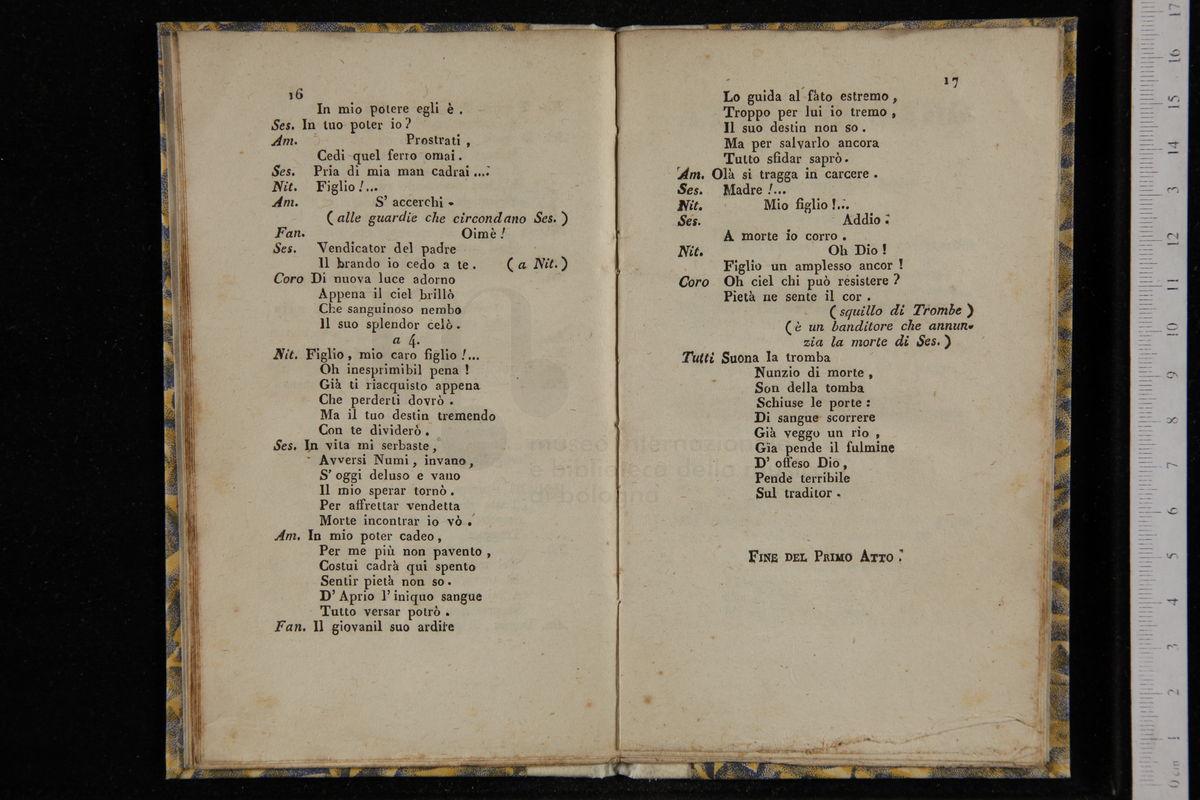 16
In mio potere egli è .
Ses. In tuo poter io?
Am. Prostrati ,
Cedi quel ferro omai.
Ses. Pria di mia man cadrai ....
Nit. Figlio!...
Am. S' accerchi -
( alle guardie che circondano Ses. )
Fan. Oimè!
Ses. Vendicator del padre
Il brando io cedo a te . ( a Nit. )
Coro Di nuova luce adorno
Appena il ciel brillò
Che sanguinoso nembo
Il suo splendor celò .
a 4.
Nit. Figlio , mio caro figlio !...
Oh inesprimibil pena !
Già ti riacquisto appena
Che perderti dovrò .
Ma il tuo destin tremendo
Con te dividerò .
Ses. In vita mi serbaste ,
Avversi Numi , invano ,
S' oggi deluso e vano
Il mio sperar tornò .
Per affrettar vendetta
Morte incontrar io vò .
Am. In mio poter cadeo ,
Per me più non pavento ,
Costui cadrà qui spento
Sentir pietà non so .
D' Aprio l' iniquo sangue
Tutto versar potrò .
Fan. Il giovanil suo ardire
17
Lo guida al fato estremo ,
Troppo per lui io tremo ,
Il suo destin non so .
Ma per salvarlo ancora
Tutto sfidar saprò .
Am. Olà si tragga in carcere .
Ses. Madre !...
Nit. Mio figlio !...
Ses. Addio :
A morte io corro .
Nit. Oh Dio !
Figlio un amplesso ancor !
Coro Oh ciel chi può resistere ?
Pietà ne sente il cor .
( squillo di Trombe )
( è un banditore che annun-
zia la morte di Ses. )
Tutti Suona la tromba
Nunzio di morte ,
Son della tomba
Schiuse le porte :
Di sangue scorrere
Già veggo un rio ,
Gia pende il fulmine
D' offeso Dio ,
Pende terribile
Sul traditor .
Fine del Primo Atto .
museo internazionale
e biblioteca della
di bologna